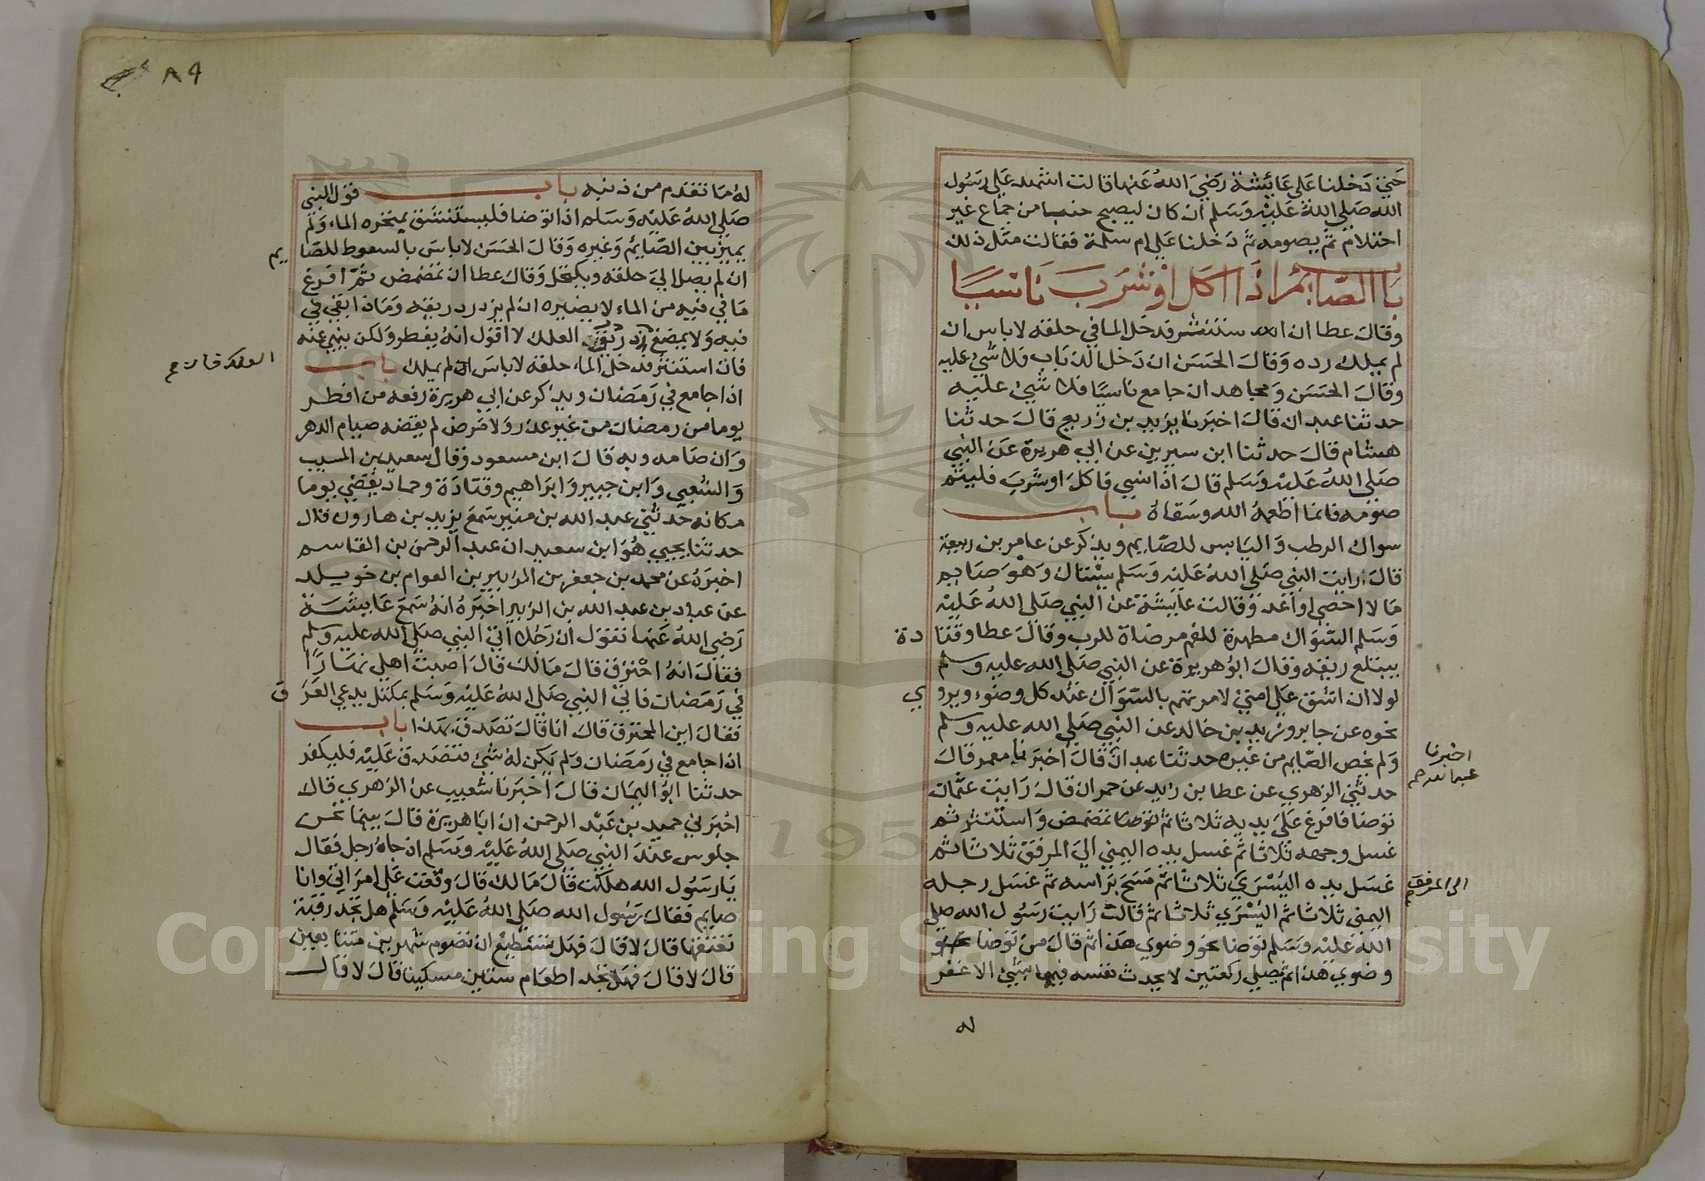 حتى دخلنا على عايشة رضي الله عنها قالت اشهد على رسول
الله صلى الله عليه وسلم ان كان ليصبح جنبا من جماع غير
احتلام ثم يصومه ثم دخلنا على ام سلمة فقالت مثل ذلك
باب الصايم اذا اكل او شرب ناسيا
وقال عطا ان استنثر فدخل الما في حلقه لا باس ان
لم يملك رده وقال الحسن ان دخل الذباب فلا شي عليه
وقال الحسن ومجاهد ان جامع ناسيا فلا شي عليه
حدثنا عبدان قال اخبرنا يزيد بن زريع قال حدثنا
هشام قال حدثنا ابن سيرين عن ابي هريرة عن النبي
صلى الله عليه وسلم قال اذا نسي فاكل او شرب فليتم
صومه فانما اطعمه الله وسقاه باب
سواك الرطب واليابس للصايم ويذكر عن عامر بن ربيعة
قال رايت النبي صلى الله عليه وسلم يستاك وهو صايم
ما لا احصي او اعد وقالت عايشة عن النبي صلى الله عليه
وسلم السواك مطهرة للفم مرضاة للرب وقال عطا وقتا
دة
يبتلع ريقه وقال ابو هريرة عن النبي صلى الله عليه وسلم
لولا ان اشق على امتي لامرتهم بالسواك عند كل وضوء ويرو
ي
نحوه عن جابر وزيد بن خالد عن النبي صلى الله عليه وسلم
ولم يخص الصايم من غيره حدثنا عبدان قال اخبرنا معمر قال
اخبرنا
عبد الله صح
حدثني الزهري عن عطا بن زيد عن حمران قال رايت عثمان
توضا فافرغ على يديه ثلاثا ثم تمضمض واستنثر ثم
غسل وجهه ثلاثا ثم غسل يده اليمنى الى المرفق ثلاثا ثم
غسل يده اليسرى ثلاثا ثم مسح براسه ثم غسل رجله
الى المرفق
اليمنى ثلاثا ثم اليسرى ثلاثا ثم قال رايت رسول الله صلى
الله عليه وسلم توضا نحو وضوي هذا ثم قال من توضا نحو
وضوي هذا ثم يصلي ركعتين لا يحدث نفسه فيهما بشي الا غفر
له
٨٩
له ما تقدم من ذنبه باب قول النبي
صلى الله عليه وسلم اذا توضا فليستنشق بمنخره الماء ولم
يميز بين الصايم وغيره وقال الحسن لا باس بالسعوط للصا
يم
ان لم يصل الى حلقه ويكتحل وقال عطا ان تمضمض ثم افرغ
ما في فيه من الماء لا يضيره ان لم يزدرد ريقه وماذا بقي في
فيه ولا يمضغ العلك فان ازدرد ريق العلك لا اقول انه يفطر ولكن ينهى عنه
العلك فان صح
فان استنثر فدخل الماء حلقه لا باس ان لم يملك باب
اذا جامع في رمضان ويذكر عن ابي هريرة رفعه من افطر
يوما من رمضان من غير عذر ولا مرض لم يقضه صيام الدهر
وان صامه وبه قال ابن مسعود وقال سعيد بن المسيب
والشعبي وابن جبير وابراهيم وقتادة وحماد يقضي يوما
مكانه حدثني عبد الله بن منير سمع يزيد بن هارون قال
حدثنا يحيى هو ابن سعيد ان عبد الرحمن بن القاسم
اخبره عن محمد بن جعفر بن الزبير بن العوام بن خويلد
عن عباد بن عبد الله بن الزبير اخبره انه سمع عايشة
رضي الله عنها تقول ان رجلا اتى النبي صلى الله عليه وسلم
فقال انه احترق قال مالك قال اصبت اهلي نهارا
في رمضان فاتي النبي صلى الله عليه وسلم بمكتل يدعى العر
ق
فقال اين المحترق قال انا قال تصدق بهذا باب
اذا جامع في رمضان ولم يكن له شي فتصدق عليه فليكفر
حدثنا ابو اليمان قال اخبرنا شعيب عن الزهري قال
اخبرني حميد بن عبد الرحمن ان ابا هريرة قال بينما نحن
جلوس عند النبي صلى الله عليه وسلم اذ جاه رجل فقال
يا رسول الله هلكت قال مالك قال وقعت على امراتي وانا
صايم فقال رسول الله صلى الله عليه وسلم هل تجد رقبة
تعتقها قال لا قال فهل تستطيع ان تصوم شهرين متتابعين
قال لا قال فهل تجد اطعام ستين مسكينا قال لا قال
Copyright © King Saud University
195